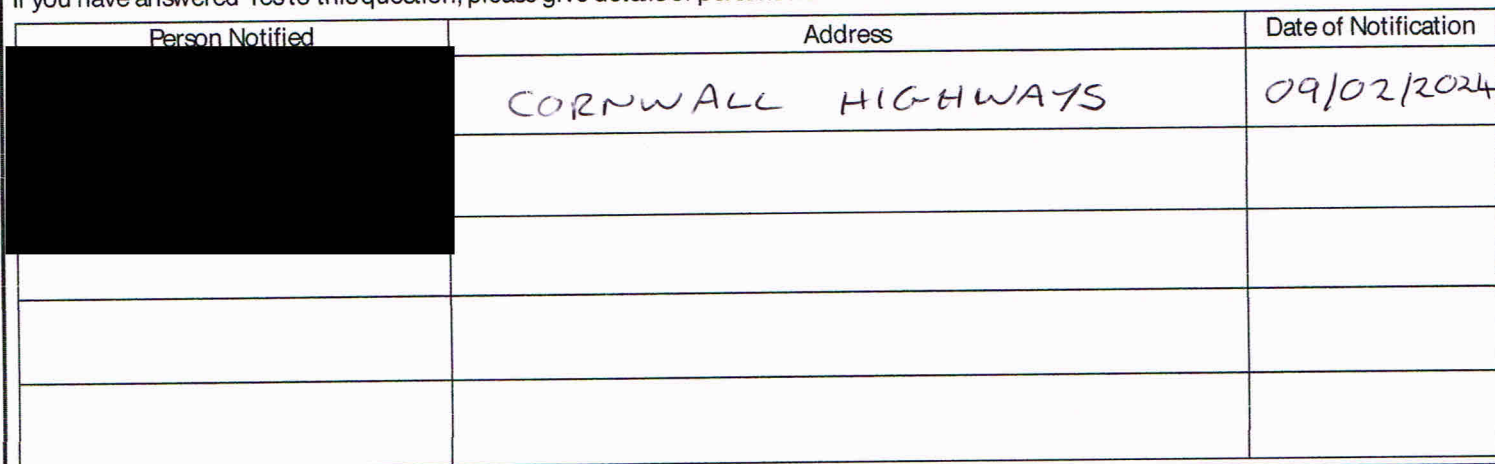 Person Notified Address Date of Notification
CORNWALL HIGHWAYS 09/02/2024